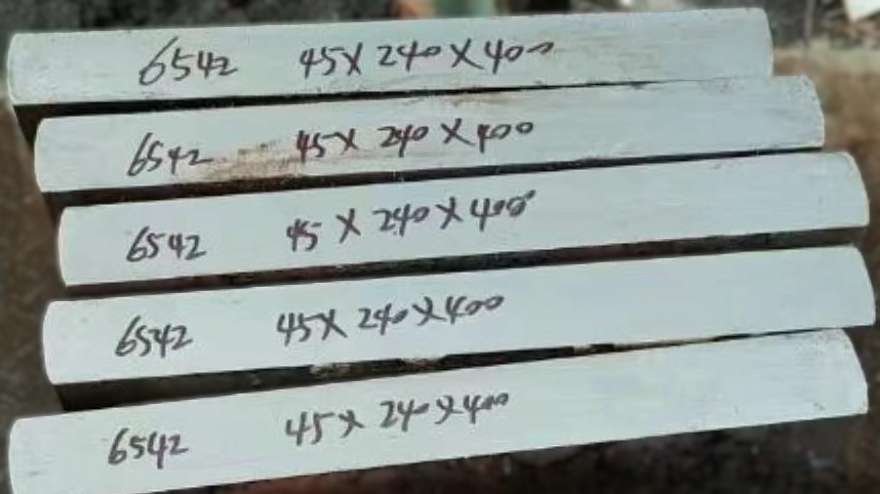 6542 45X240X400
6542 45X240X400
6542 45X240X400
6542 45X240X400
6542 45X240X400